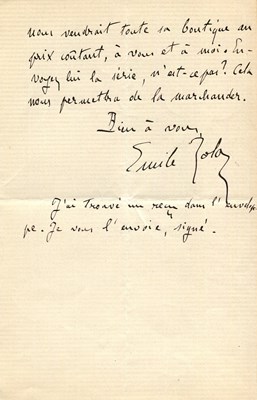 nous vendrait toute sa boutique au
prix coûtant, à vous et à moi. En-
voyez lui la série, n'est-ce pas? Cela
nous permettra de la marchander.
Bien à vous,
Emile Zola
J'ai trouvé un reçu dans l'envelop-
pe. Je vous l'envoie, signé.